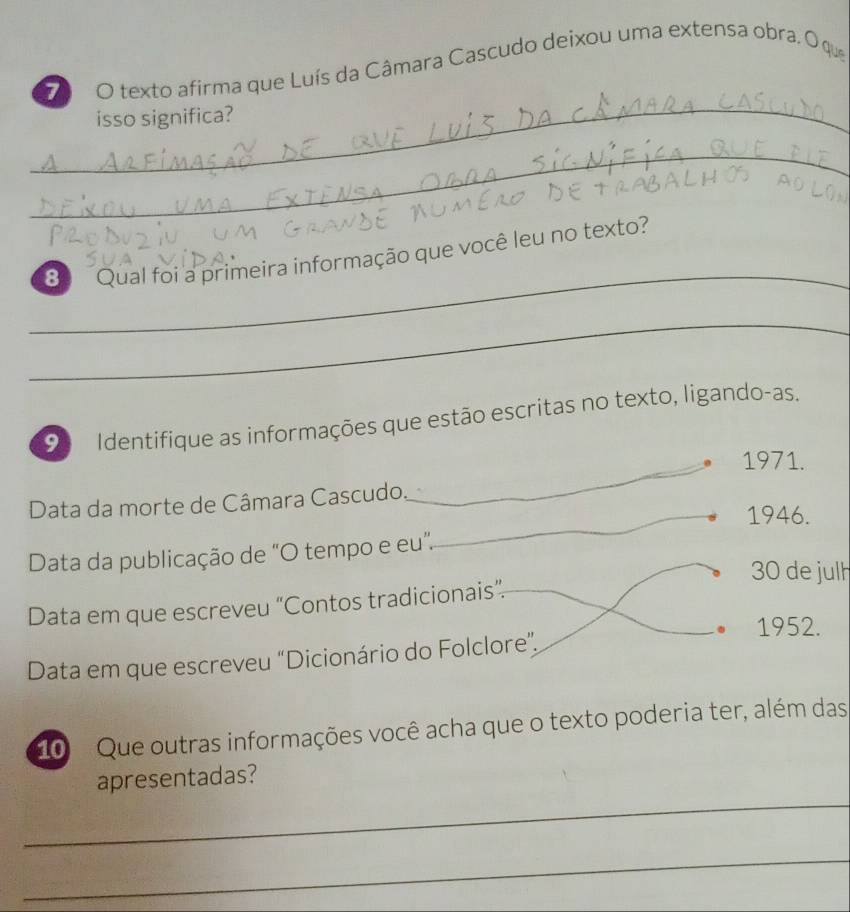 7 O texto afirma que Luís da Câmara Cascudo deixou uma extensa obra. O que
isso significa?
A ARFIMASAÕ DE QUE LUIS DA CÂMARA CASCUDO
DEIXOU UMA EXTENSA OBRA SIGNIFICA QUE ELE
PRODUZIU UM GRANDE NUMERO DE TRABALHOS AO LON
SUA VIDA.
8 Qual foi a primeira informação que você leu no texto?
9 Identifique as informações que estão escritas no texto, ligando-as.
Data da morte de Câmara Cascudo.
1971.
Data da publicação de "O tempo e eu".
1946.
Data em que escreveu "Contos tradicionais".
30 de julh
Data em que escreveu "Dicionário do Folclore".
1952.
10 Que outras informações você acha que o texto poderia ter, além das
apresentadas?